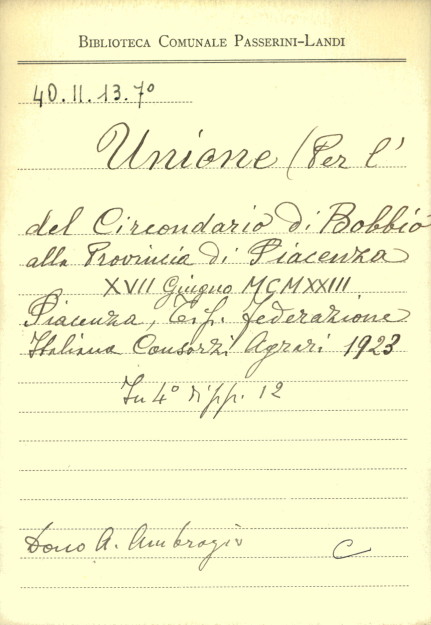 BIBLIOTECA COMUNALE PASSERINI-LANDI
40.II.13.7º
Unione (Per l'
del Circondario di Bobbio
alla Provincia di Piacenza
XVII Giugno MCMXXIII
Piacenza, Tip. Federazione
Italiana Consorzi Agrari 1923
In 4º di pp. 12
Dono A. Ambrogio
C